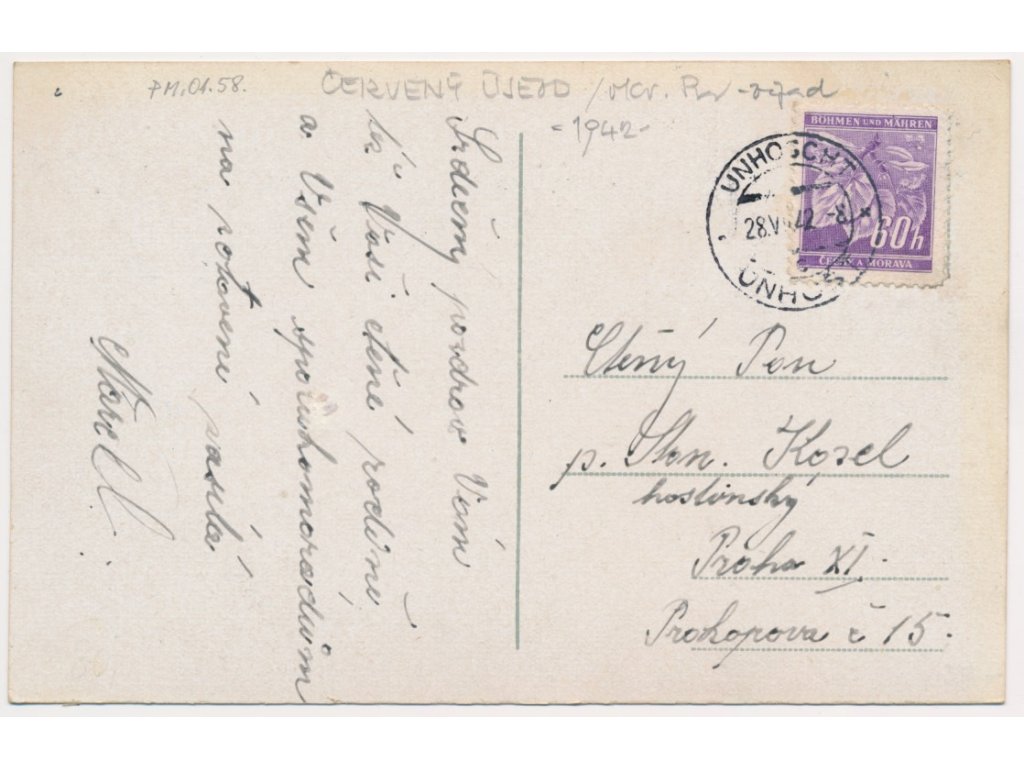 PM.01.58. ČERVENÝ ÚJEZD / okr. Pr-západ
-1942-
BÖHMEN UND MÄHREN
60h
ČECHY A MORAVA
UNHOSCHT
28.VI.42 -8
UNHOŠ
Srdečný pozdrav Vám
též Vaší ctěné rodině
a Všem spoluhamerádům
na potvení zasílá
Karel
Ctěný Pan
p. Ant. Kozel
hostinský
Praha XI.
Prokopova č 15.